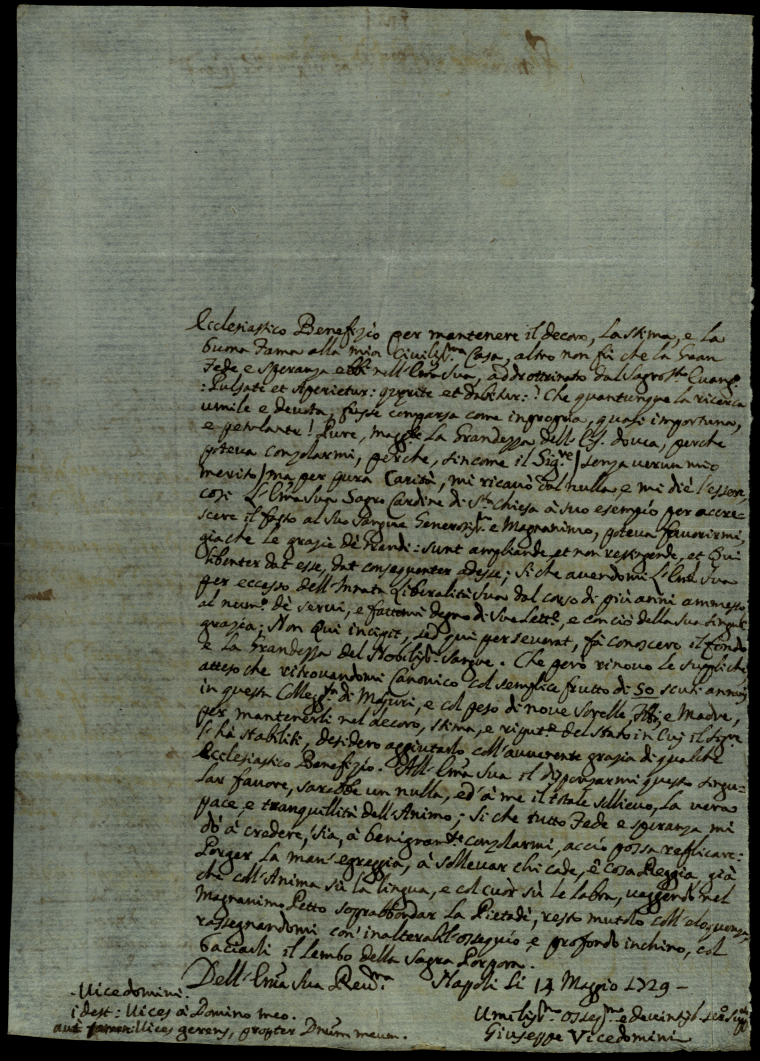 Ecclesiastico Benefizio per mantenere il decoro, La stima, e La
buona Fama alla mia Civiliss.ma Casa, altro non fù che la Gran
Fede e Speranza ebbi nell'Em̃a Sua, addottrinato dal Sagros.to Evang.o
: Pulsate et Aperietur: querite et dabitur: ? Che quantunque la ricerca
umile e devota, fusse comparsa come impropria, quasi importuna,
e petulante! Pure, La Grandezza dell' dovea, perche
poteva conzolarmi, perche, sincome il Sig.re / senza verun mio
merito / ma per pura Carità, mi ricavò dal nulla e mi diè l'essere,
così L'Em̃a Sua Sagro Cardine di S.ta Chiesa à suo esempio per accre-
scere il fasto al suo Sangue Generosiss.o e Magnanimo, poteva favorirmi,
giache le grazie de Grandi: sunt ampliande, et non restringende, et Qui
libenter dat esse, dat consequenter adesse; Si che avendomi L'Em̃a Sua
per eccesso dell'Innata Liberalità Sua dal corso di più anni ammesso
al num.o de servi, e fattomi degno di Sue Lett.e, e con ciò della Sua singul.
grazia: Non Qui incipit, sed qui perseverat, fà conoscere il fondo
e la Grandezza del Nobiliss.o Sangue. Che però rinovo le suppliche,
atteso che ritrovandomi Canonico col semplice frutto di 50 scuti annui
in questa Colleg.ta di Majuri, e col peso di nove Sorelle, e Madre,
per mantenerli nel decoro, stima, e riput.e del stato in Cui il Sig.re
l'hà stabiliti, desidero aggiutarlo coll'avvenente grazia di qualche
Ecclesiastico Benefizio. All'Em̃a Sua il dispenzarmi questo singu-
lar favore, sarebbe un nulla, ed'à me il totale sollievo, La vera
pace, e tranquillità dell'Animo; Si che tutto Fede e speranza mi
dò à credere, sia, à benignam.te conzolarmi, acciò possa replicare:
Porger La man'egreggia, à sollevar chi cade, è cosa Reggia, già
che coll'Anima sù la lingua, e col cuor sù le labra, veggendo nel
Magnanimo Petto soprabbondar La Pietade, resto mutolo coll'eloquenza
rassegnandomi con'inalterabil'ossequio e profondo inchino, col
baciarli il Lembo della Sagra Porpora.
Dell'Em̃a Sua Rev.ma Napoli Li 14 Maggio 1729 -
Umiliss.o Osseq.mo e devintiss. ser.o
Giuseppe Vicedomini
-Vicedomini.
idest: Vices à Domino meo.
aut Vices gerens, propter Dñum meum.